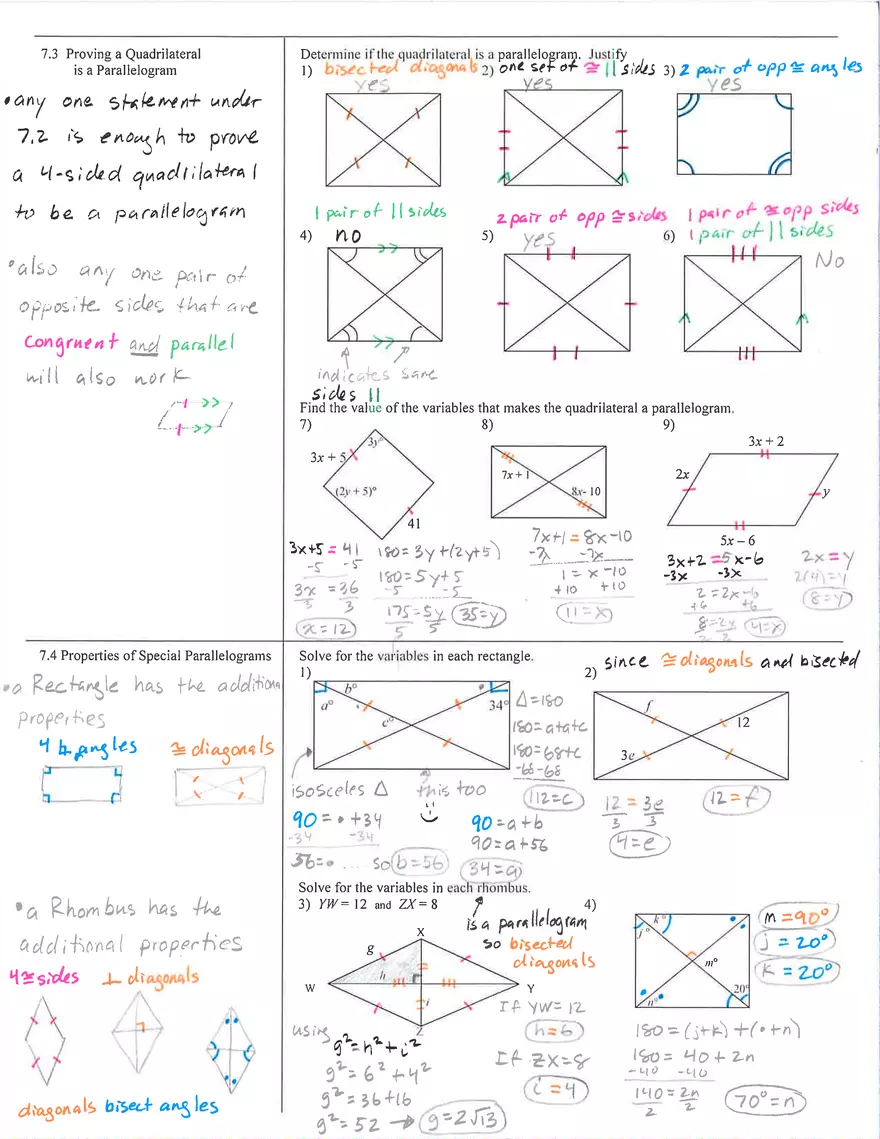 7.3 Proving a Quadrilateral
is a Parallelogram
• any one statement under
7.2 is enough to prove
a 4-sided quadrilateral
to be a parallelogram
• also any one pair of
opposite sides that are
congruent and parallel
will also work
Determine if the quadrilateral is a parallelogram. Justify
1) bisected diagonals
yes
2) one set of ≅ || sides
yes
3) 2 pair of opp ≅ angles
yes
1 pair of || sides
4) no
indicates same
sides ||
2 pair of opp ≅ sides
5) yes
1 pair of ≅ opp sides
6) 1 pair of || sides
No
Find the value of the variables that makes the quadrilateral a parallelogram.
7)
3y°
3x + 5
(2y + 5)°
41
3x+5 = 41
-5 -5
3x = 36
3 3
x = 12
180 = 3y + (2y+5)
180 = 5y + 5
-5 -5
175 = 5y
5 5
35 = y
8)
7x + 1
8x- 10
7x+1 = 8x-10
-7x -7x
1 = x -10
+10 +10
11 = x
9)
3x + 2
2x
y
5x – 6
3x+2 = 5x-6
-3x -3x
2 = 2x-6
+6 +6
8 = 2x
2 2
4 = x
2x = y
2(4) = y
8 = y
7.4 Properties of Special Parallelograms
• a Rectangle has the additional
properties
4 angles
≅ diagonals
• a Rhombus has the
additional properties
4 ≅ sides
⊥ diagonals
diagonals bisect angles
Solve for the variables in each rectangle.
1)
a°
b°
c°
34°
isosceles Δ
this too
Δ = 180
180 = a+a+c
180 = 68+c
-68 -68
112 = c
90 = • + 34
-34 -34
56 = • ... so b = 56
90 = a + b
90 = a + 56
34 = a
2) since ≅ diagonals and bisected
f
12
3e
12 = 3e
3 3
4 = e
12 = f
Solve for the variables in each rhombus.
3) YW = 12 and ZX = 8
is a parallelogram
so bisected
diagonals
X
g
h
W
Y
i
Z
If YW = 12
h = 6
If ZX = 8
i = 4
using
g² = h² + i²
g² = 6² + 4²
g² = 36+16
g² = 52 → g = 2√13
4)
k°
j°
m°
n°
20°
m = 90°
j = 20°
k = 20°
180 = (j+k) + (• + n)
180 = 40 + 2n
-40 -40
140 = 2n
2 2
70° = n